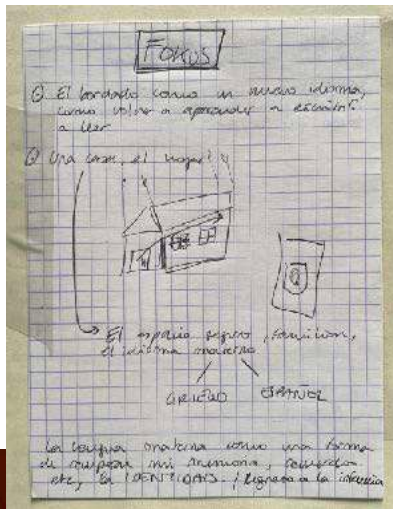 FOKUS
El bordado como un nuevo idioma,
como volver a aprender a escribir
a leer
Una casa, el hogar
El espacio seguro, familiar,
el idioma materno
GRIEGO ESPAÑOL
La lengua materna como una forma
de recuperar mi memoria, recuerdos
etc, la IDENTIDAD / Regreso a la infancia